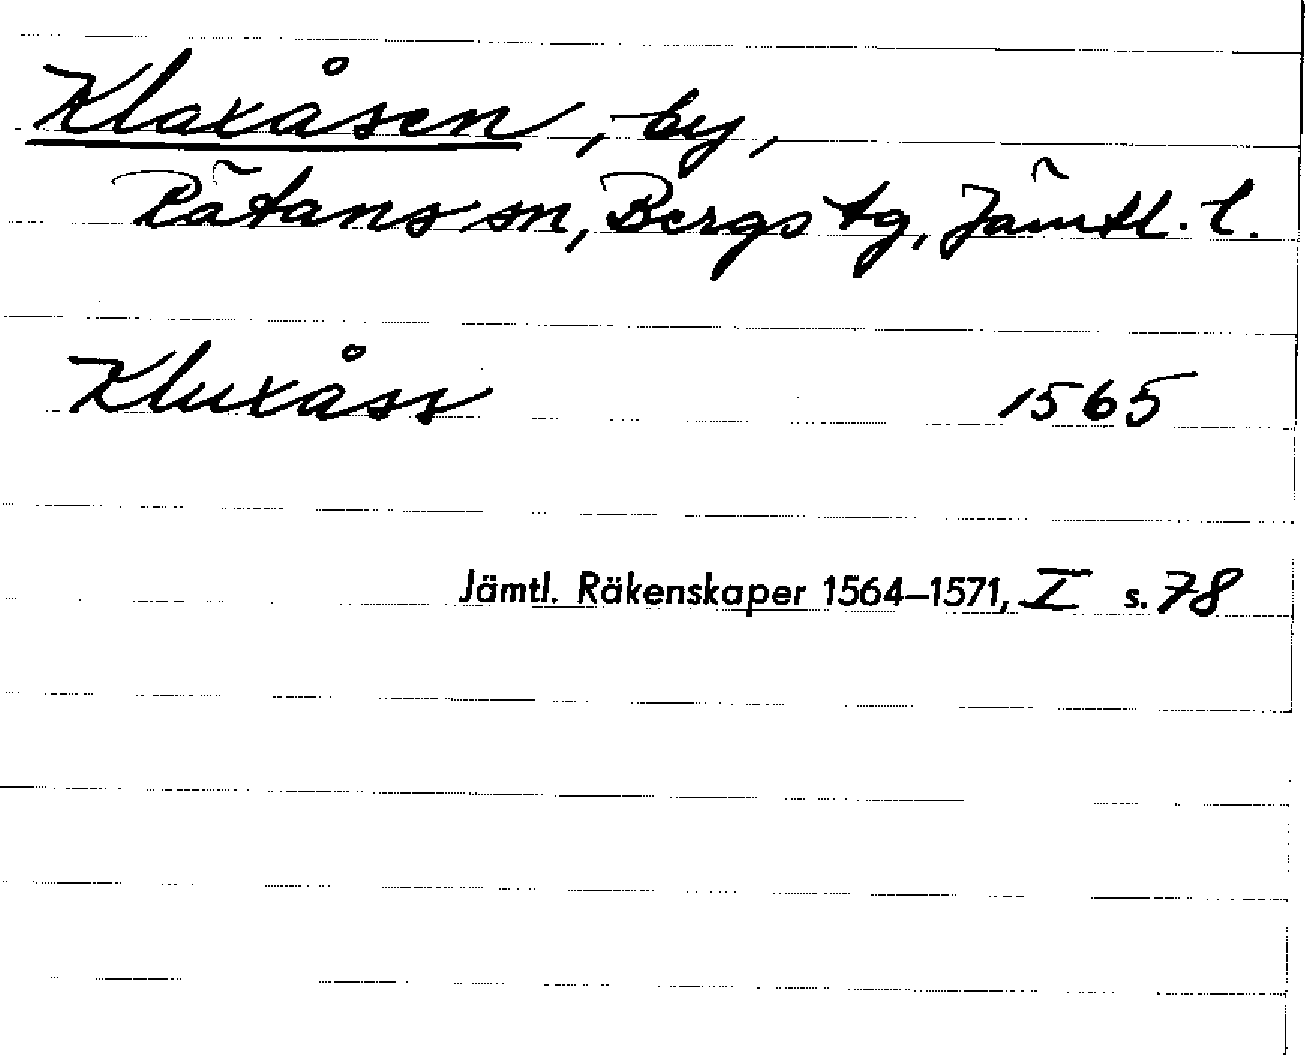 Klaxåsen, by,
Rätans sn, Bergs tg, Jämtl. l.
Kluxåss 1565
Jämtl. Räkenskaper 1564–1571, I s. 78